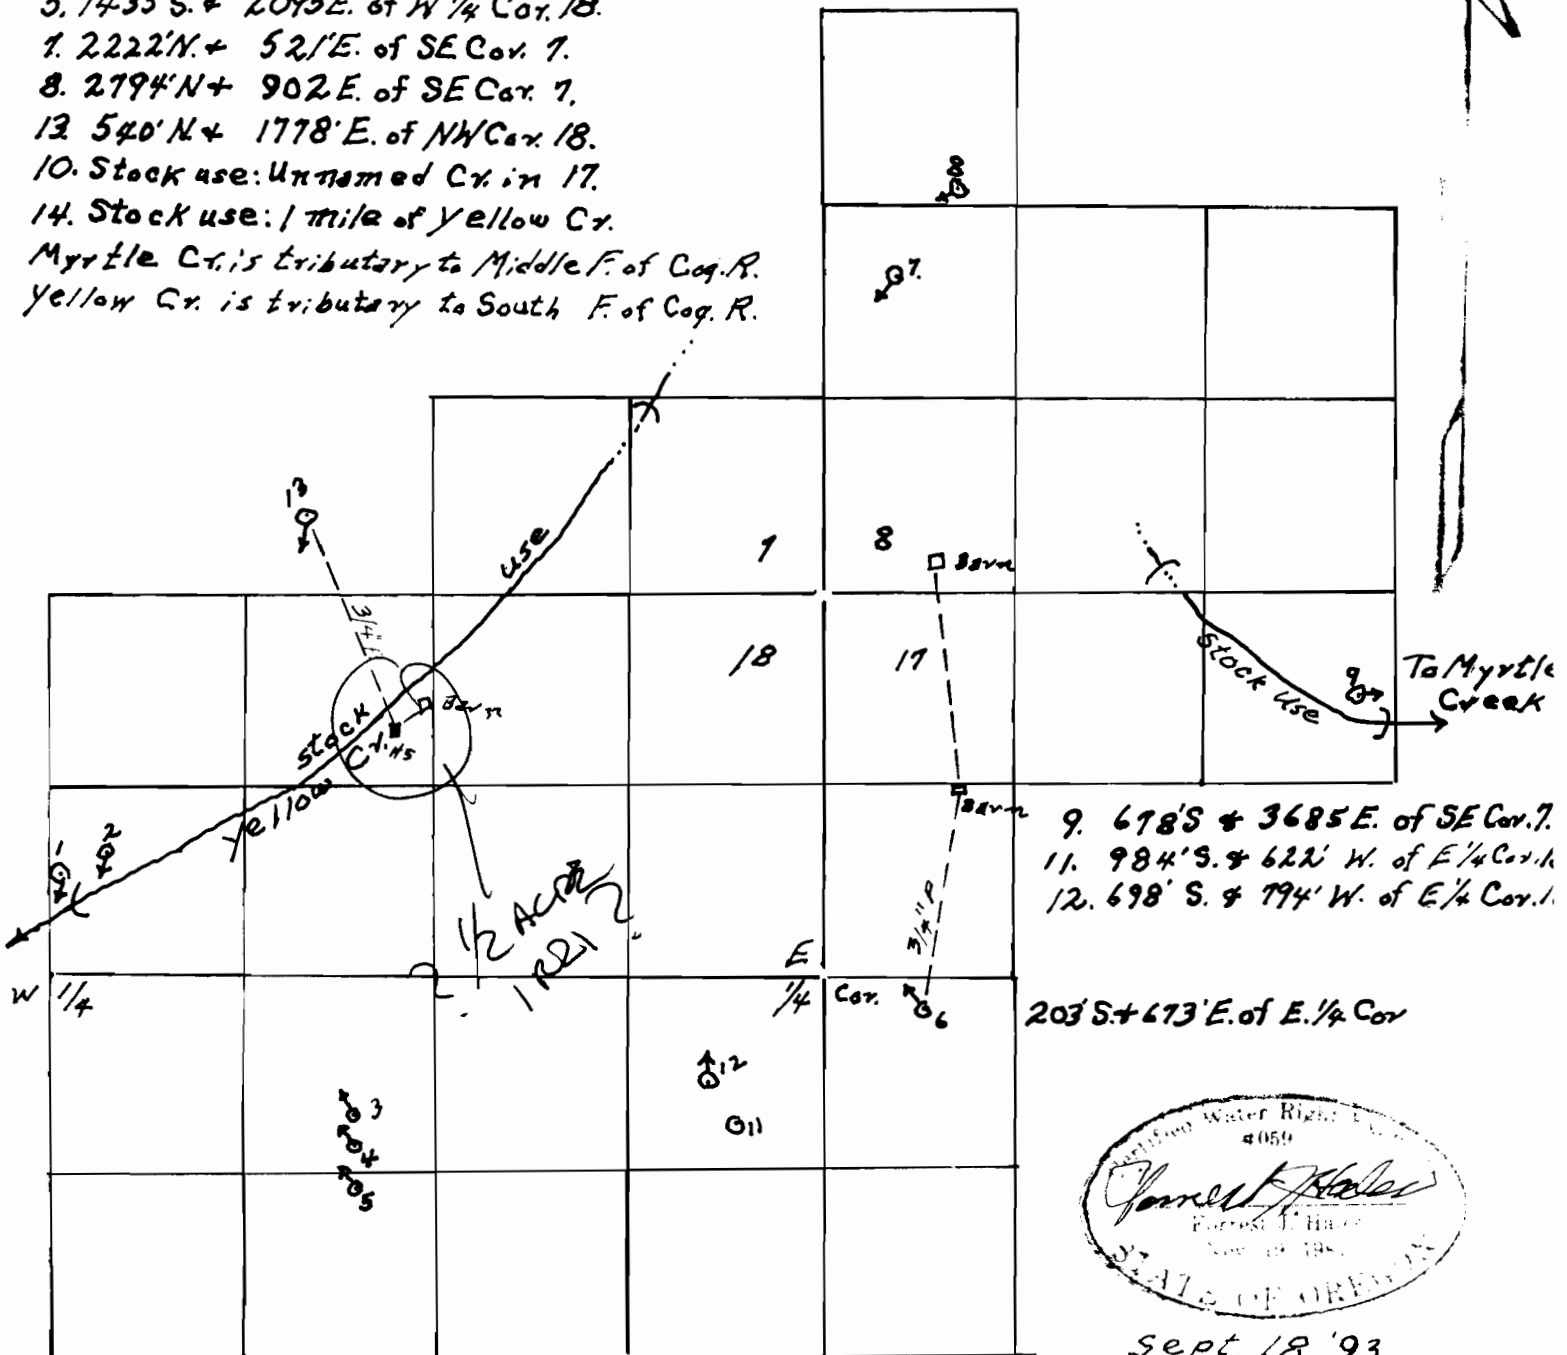 5. 1435' S. & 2095'E. of W 1/4 Cor. 18.
7. 2222'N. & 521'E. of SE Cor. 7.
8. 2794'N & 902 E. of SE Cor. 7.
13. 540' N. & 1778' E. of NW Cor. 18.
10. Stock use: Unnamed Cr. in 17.
14. Stock use: 1 mile of Yellow Cr.
Myrtle Cr. is tributary to Middle F. of Coq. R.
Yellow Cr. is tributary to South F. of Coq. R.
N
8
7.
13
3/4"
use
7
8
Barn
18
17
Stock use
9
To Myrtle
Creek
Barn
HS
stock
Yellow Cr.
Barn
1
2
9. 678'S & 3685 E. of SE Cor. 7.
11. 984' S. & 622' W. of E 1/4 Cor.
12. 698' S. & 794' W. of E 1/4 Cor.
1/2
3/4" P
W 1/4
E
1/4 Cor.
6
203' S. & 673' E. of E. 1/4 Cor
12
11
3
4
5
Water Right
#059
Forrest J.
STATE OF OREGON
Sept 18 '93